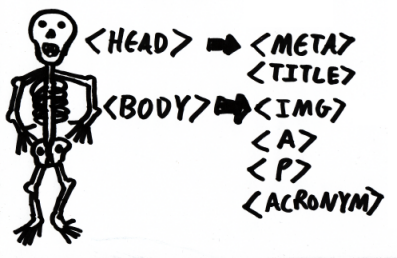 <HEAD> → <META>
<TITLE>
<BODY> → <IMG>
<A>
<P>
<ACRONYM>